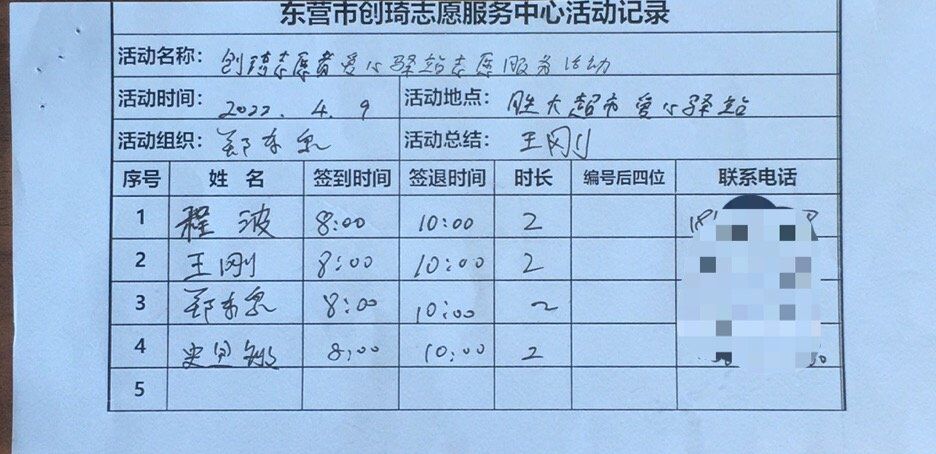 东营市创琦志愿服务中心活动记录
活动名称: 创琦志愿者爱心驿站志愿服务活动
活动时间: 2022.4.9 活动地点: 胜大超市爱心驿站
活动组织: 郑东泉 活动总结: 王刚
序号 姓名 签到时间 签退时间 时长 编号后四位 联系电话
1 程波 8:00 10:00 2
2 王刚 8:00 10:00 2
3 郑东泉 8:00 10:00 2
4 史 8:00 10:00 2
5